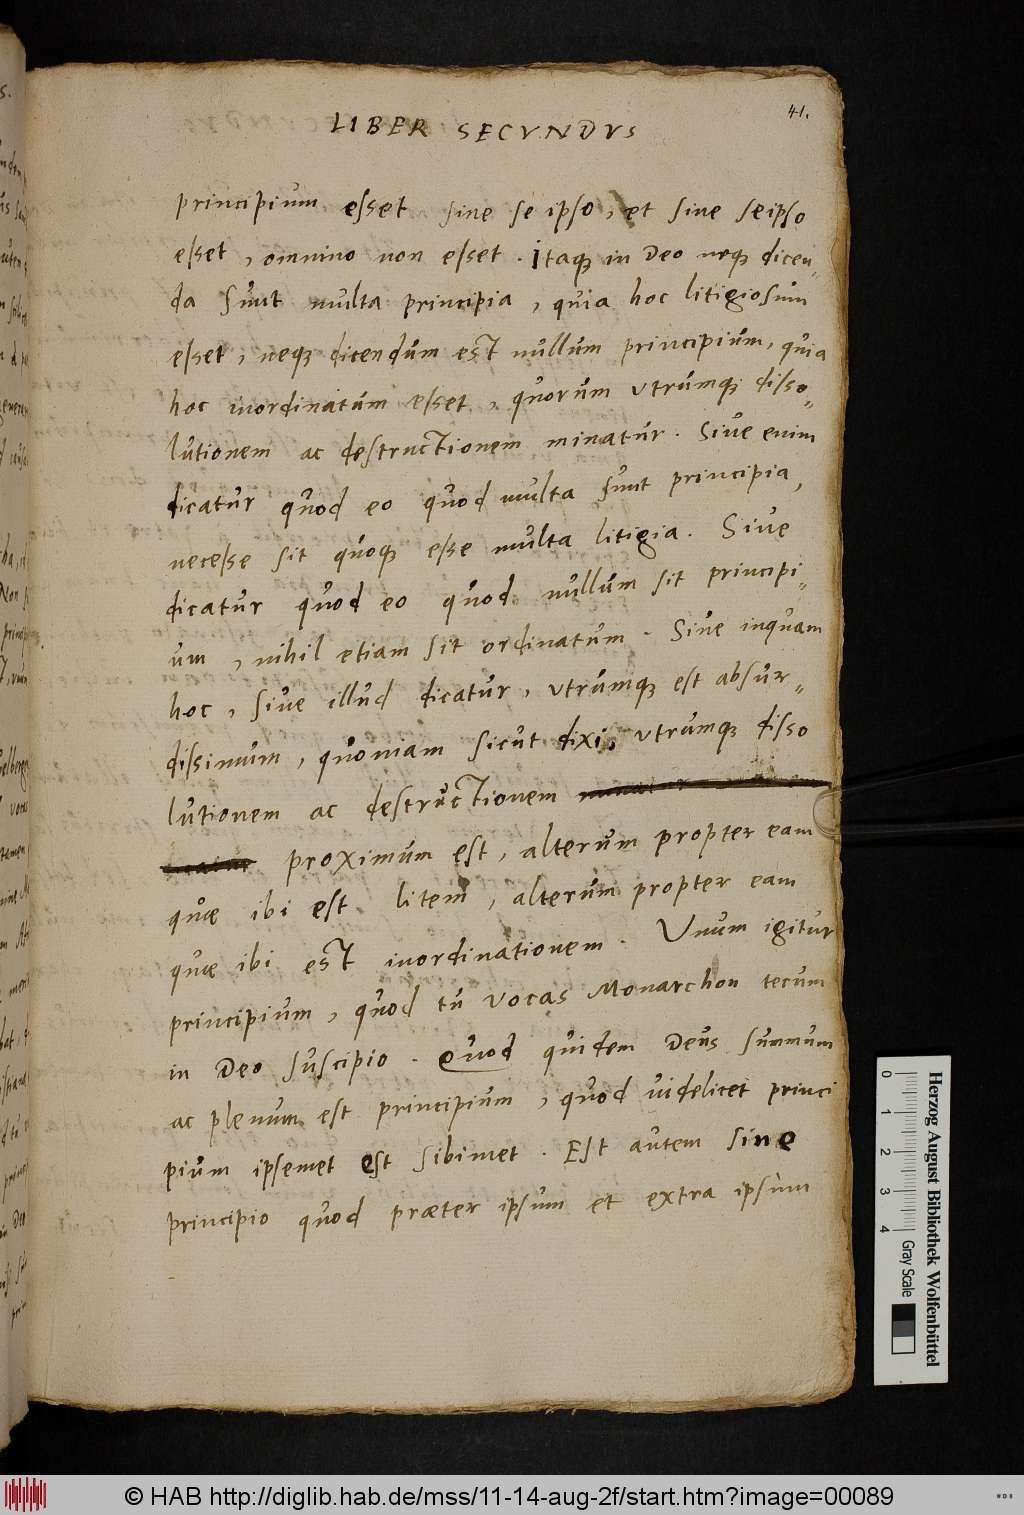 41.
LIBER SECVNDVS
principium esset sine se ipso, et sine seipso
esset, omnino non esset. Itaq; in Deo neq; dicen„
da sunt multa principia, quia hoc litigiosum
esset, neq; dicendum est nullum principium, quia
hoc inordinatum esset, quorum vtrumq; disso„
lutionem ac destructionem minatur. Siue enim
dicatur quod eo quod multa sunt principia,
necesse sit quoq; esse multa litigia. Siue
dicatur quod eo quod nullum sit principi„
um, nihil etiam sit ordinatum. Siue inquam
hoc, siue illud dicatur, vtrumq; est absur„
dissimum, quoniam sicut dixi, vtrumq; disso
lutionem ac destructionem
proximum est, alterum propter eam
quæ ibi est litem, alterum propter eam
quæ ibi est inordinationem. Vnum igitur
principium, quod tu vocas Monarchon tecum
in Deo suscipio. Quod quidem Deus summum
ac plenum est principium, quod uidelicet princi
pium ipsemet est sibimet. Est autem sine
principio quod præter ipsum et extra ipsum
Herzog August Bibliothek Wolfenbüttel
0 1 2 3 4 Gray Scale
© HAB http://diglib.hab.de/mss/11-14-aug-2f/start.htm?image=00089